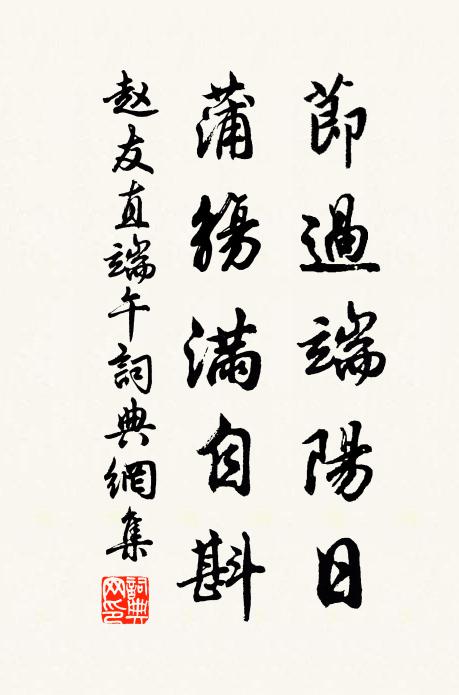 節過端陽日
蒲觴滿自斟
赵友直端午詞典網集
詞典網印